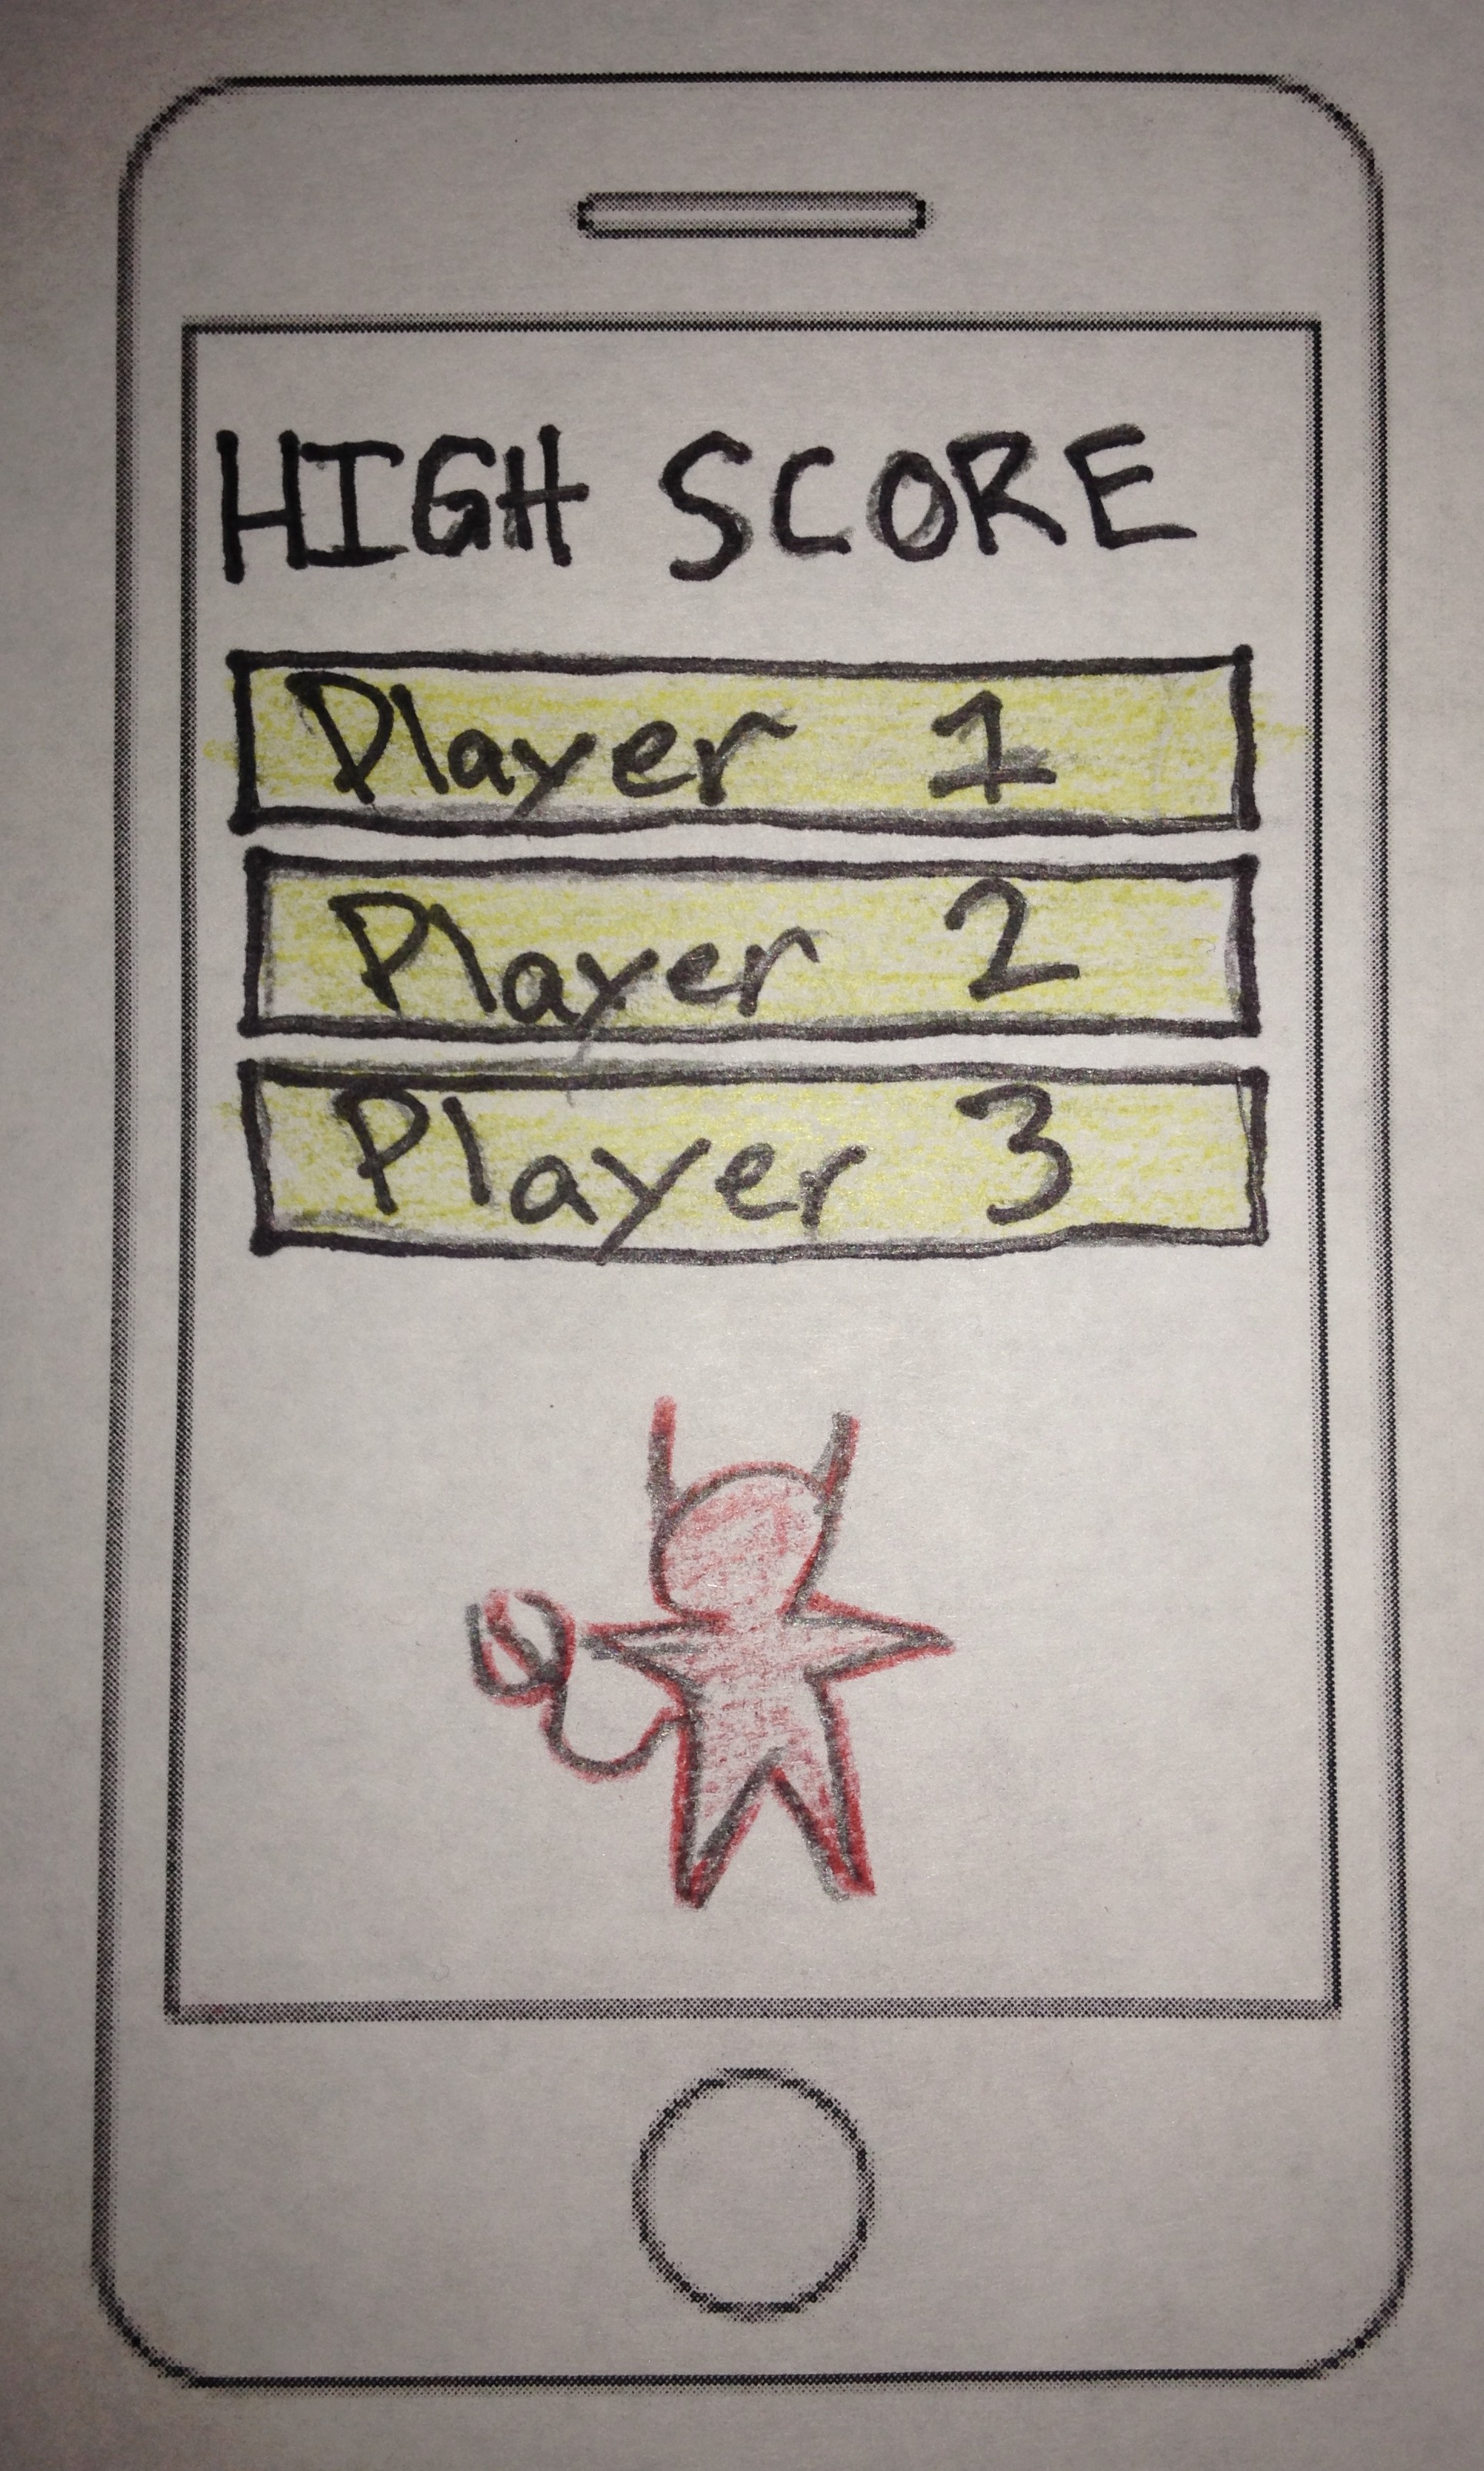 HIGH SCORE
Player 1
Player 2
Player 3